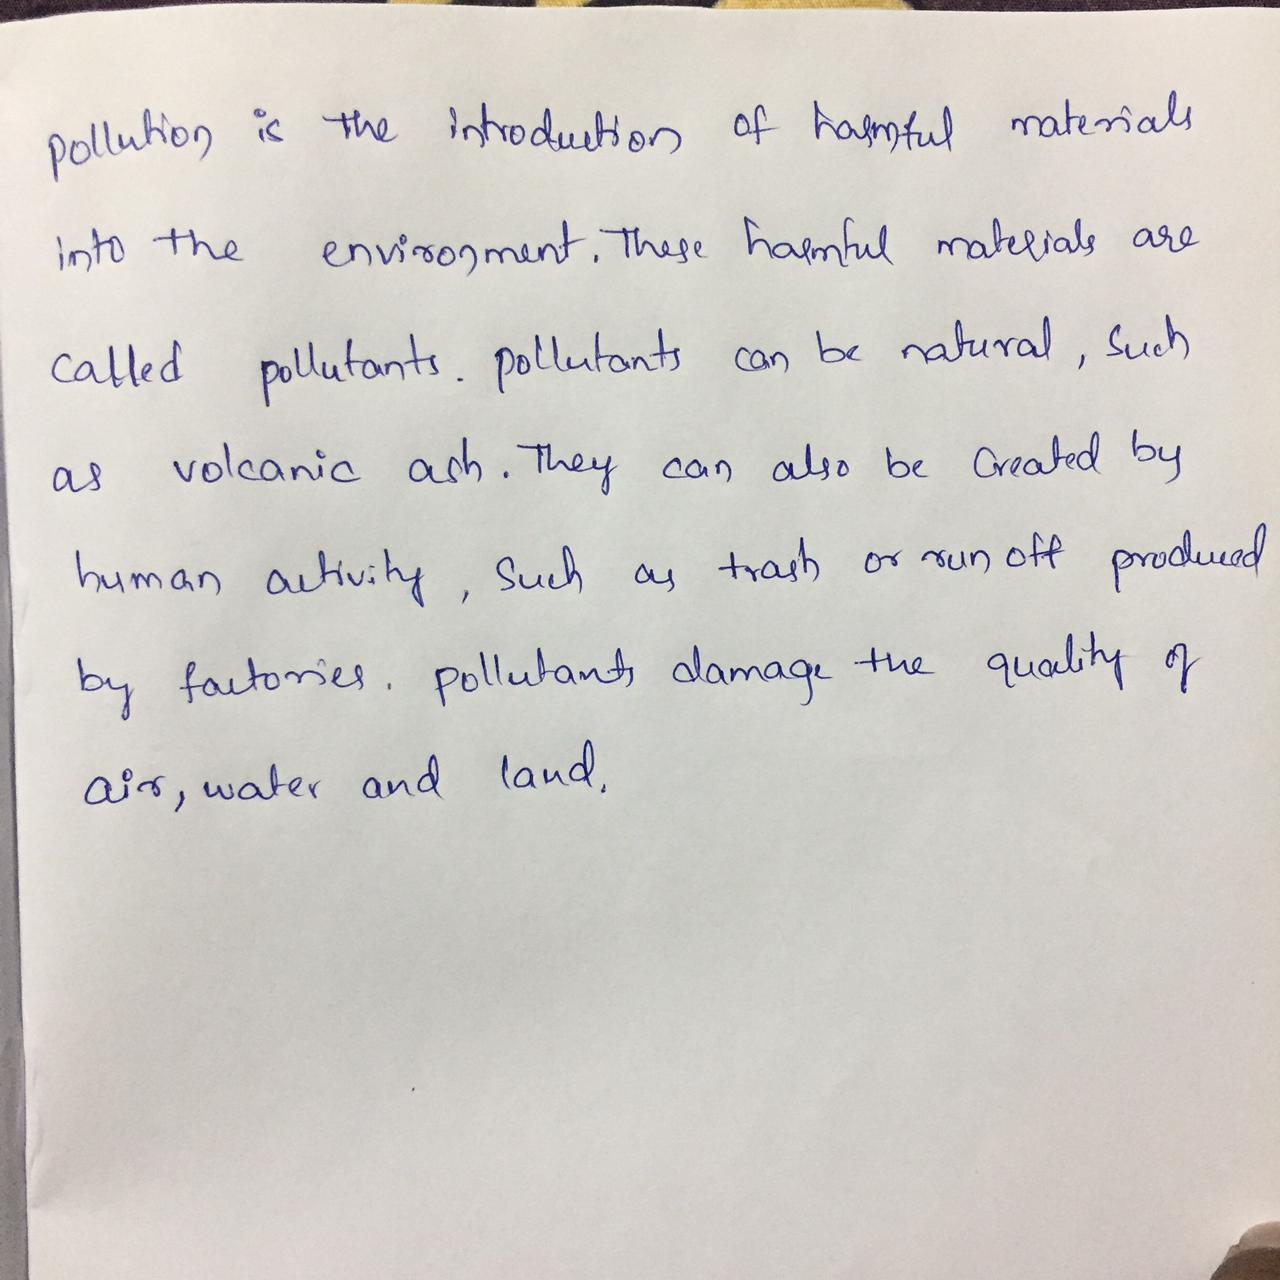 pollution is the introduction of harmful materials
into the environment. These harmful materials are
called pollutants. pollutants can be natural, such
as volcanic ash. They can also be created by
human activity, such as trash or run off produced
by factories. pollutants damage the quality of
air, water and land.